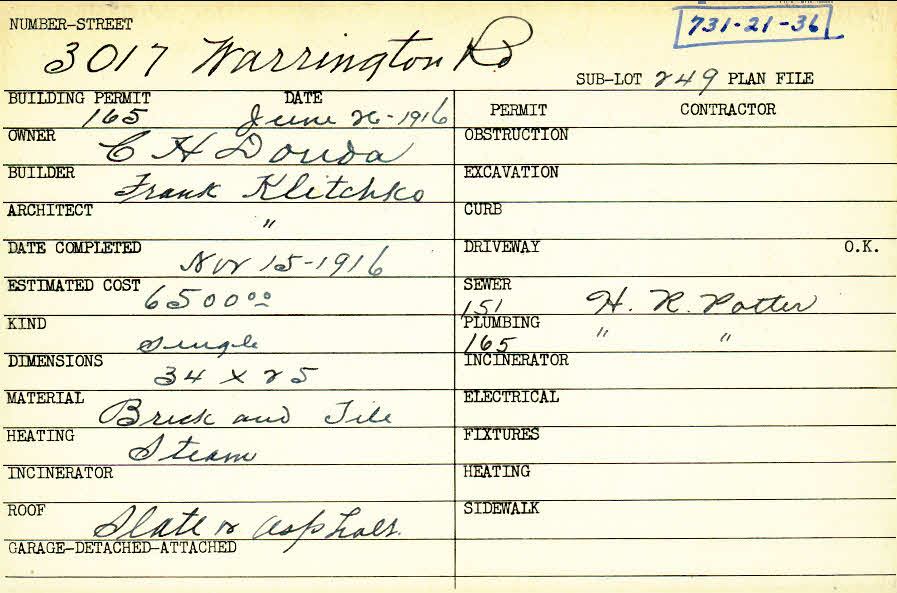 731-21-36
NUMBER-STREET
3017 Warrington Rd
SUB-LOT 249 PLAN FILE
BUILDING PERMIT DATE
165 June 26-1916
OWNER C H Douda
BUILDER Frank Klitchko
ARCHITECT "
DATE COMPLETED Nov 15-1916
ESTIMATED COST 6500 00
KIND Single
DIMENSIONS 34 x 25
MATERIAL Brick and Tile
HEATING Steam
INCINERATOR
ROOF Slate or asphalt.
GARAGE-DETACHED-ATTACHED
PERMIT CONTRACTOR
OBSTRUCTION
EXCAVATION
CURB
DRIVEWAY O.K.
SEWER
151 H. R. Potter
PLUMBING
165 " "
INCINERATOR
ELECTRICAL
FIXTURES
HEATING
SIDEWALK